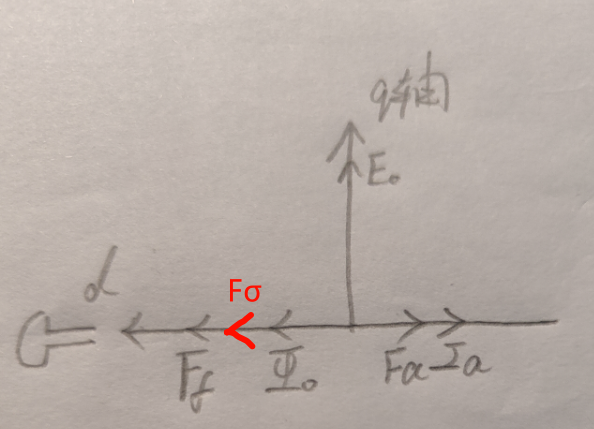 q轴
E₀
Fσ
d
Ff
Φ₀
Fa
Ia